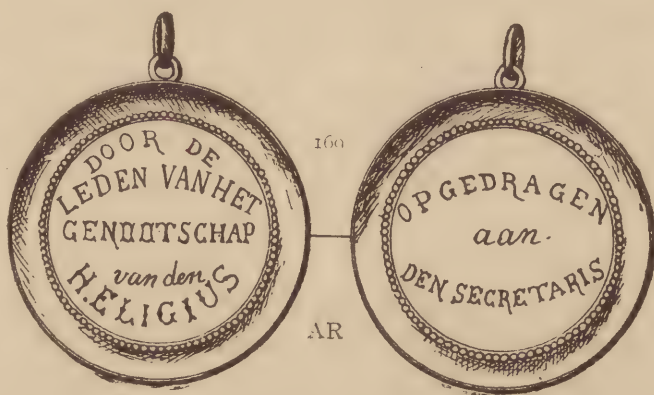 DOOR DE
LEDEN VAN HET
GENOOTSCHAP
van den
H. ELIGIUS
160
AR
OPGEDRAGEN
aan.
DEN SECRETARIS